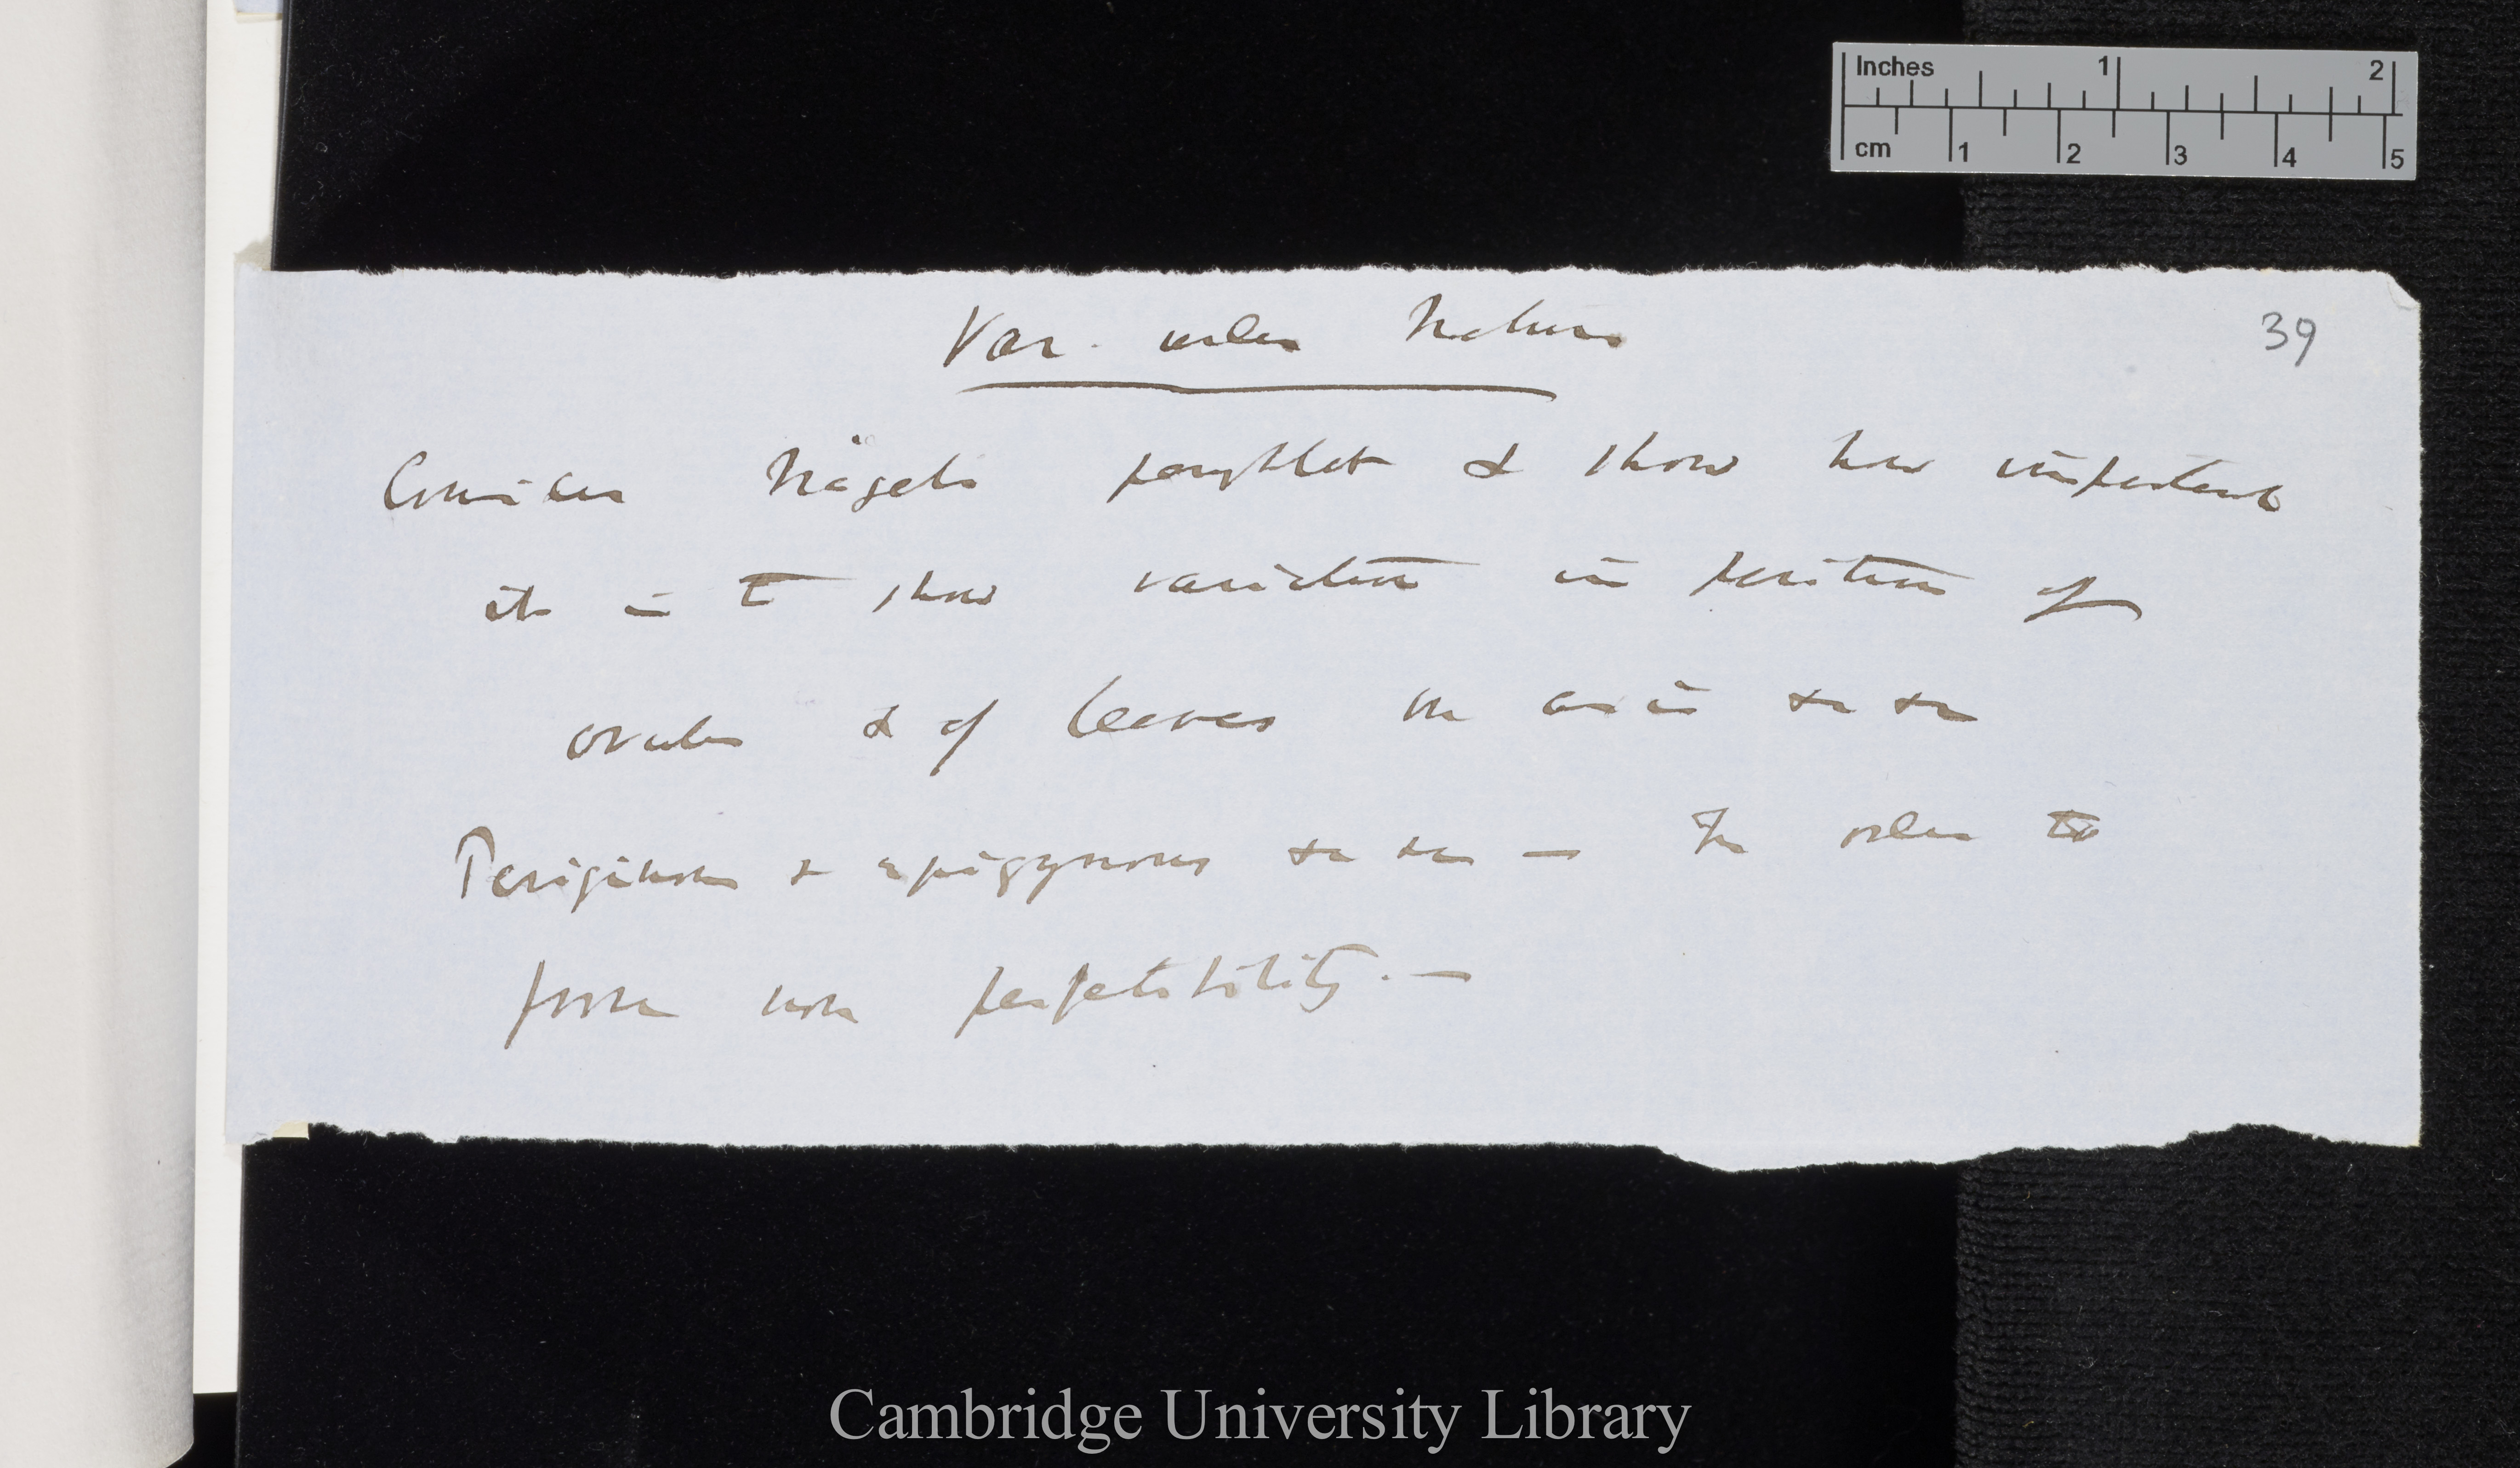 Inches 1 2
cm 1 2 3 4 5
39
Var. under Nature
Consider Nägeli pamphlet & show how important
it is to show variation in position of
ovules & of leaves on axis &c &c
Periginous & epigynous &c &c — In order to
prove non perfectibility. —
Cambridge University Library